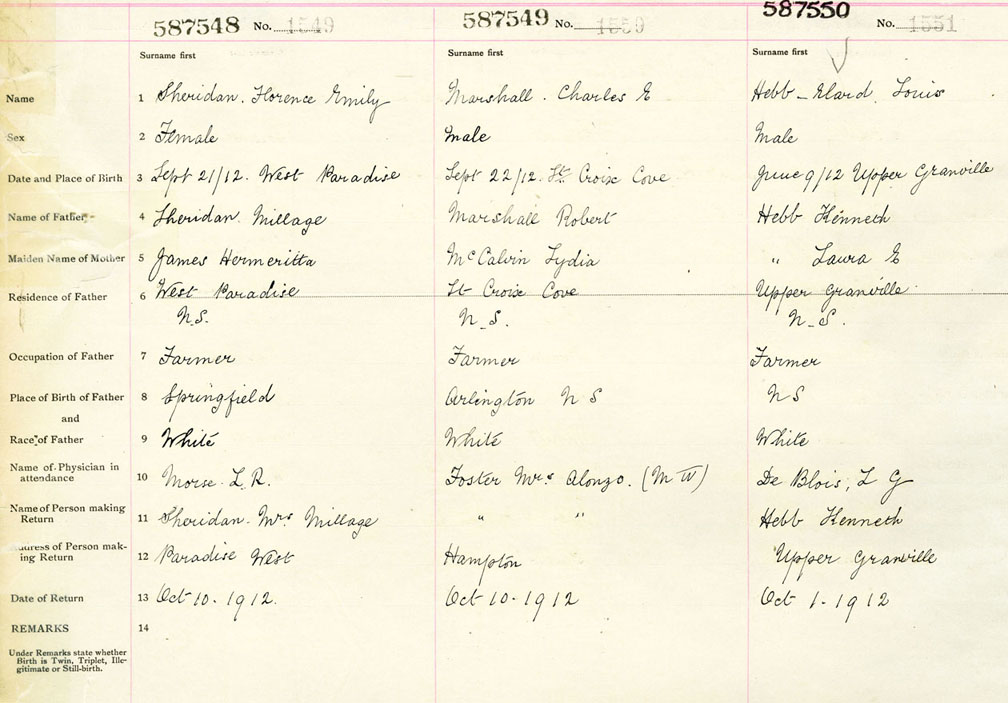 587548 No. 1549 587549 No. 1550 587550 No. 1551
Surname first Surname first Surname first
Name 1 Sheridan. Florence Emily Marshall. Charles E Hebb - Elard. Louis
Sex 2 Female male Male
Date and Place of Birth 3 Sept 21/12. West Paradise Sept 22/12. St. Croix Cove June 9/12 Upper Granville
Name of Father 4 Sheridan. Millage Marshall Robert Hebb Kenneth
Maiden Name of Mother 5 James Hermeritta McCalvin Lydia " Laura E
Residence of Father 6 West Paradise St Croix Cove Upper Granville
N.S. N.S. N.S.
Occupation of Father 7 Farmer Farmer Farmer
Place of Birth of Father 8 Springfield Arlington N S N S
and
Race of Father 9 White White White
Name of Physician in
attendance 10 Morse L.R. Foster Mrs Alonzo. (M W) De Blois, L G
Name of Person making
Return 11 Sheridan. Mrs Millage " " Hebb Kenneth
Address of Person mak-
ing Return 12 Paradise West Hampton Upper Granville
Date of Return 13 Oct 10. 1912. Oct 10. 1912 Oct 1-1912
REMARKS 14
Under Remarks state whether
Birth is Twin, Triplet, Ille-
gitimate or Still-birth.